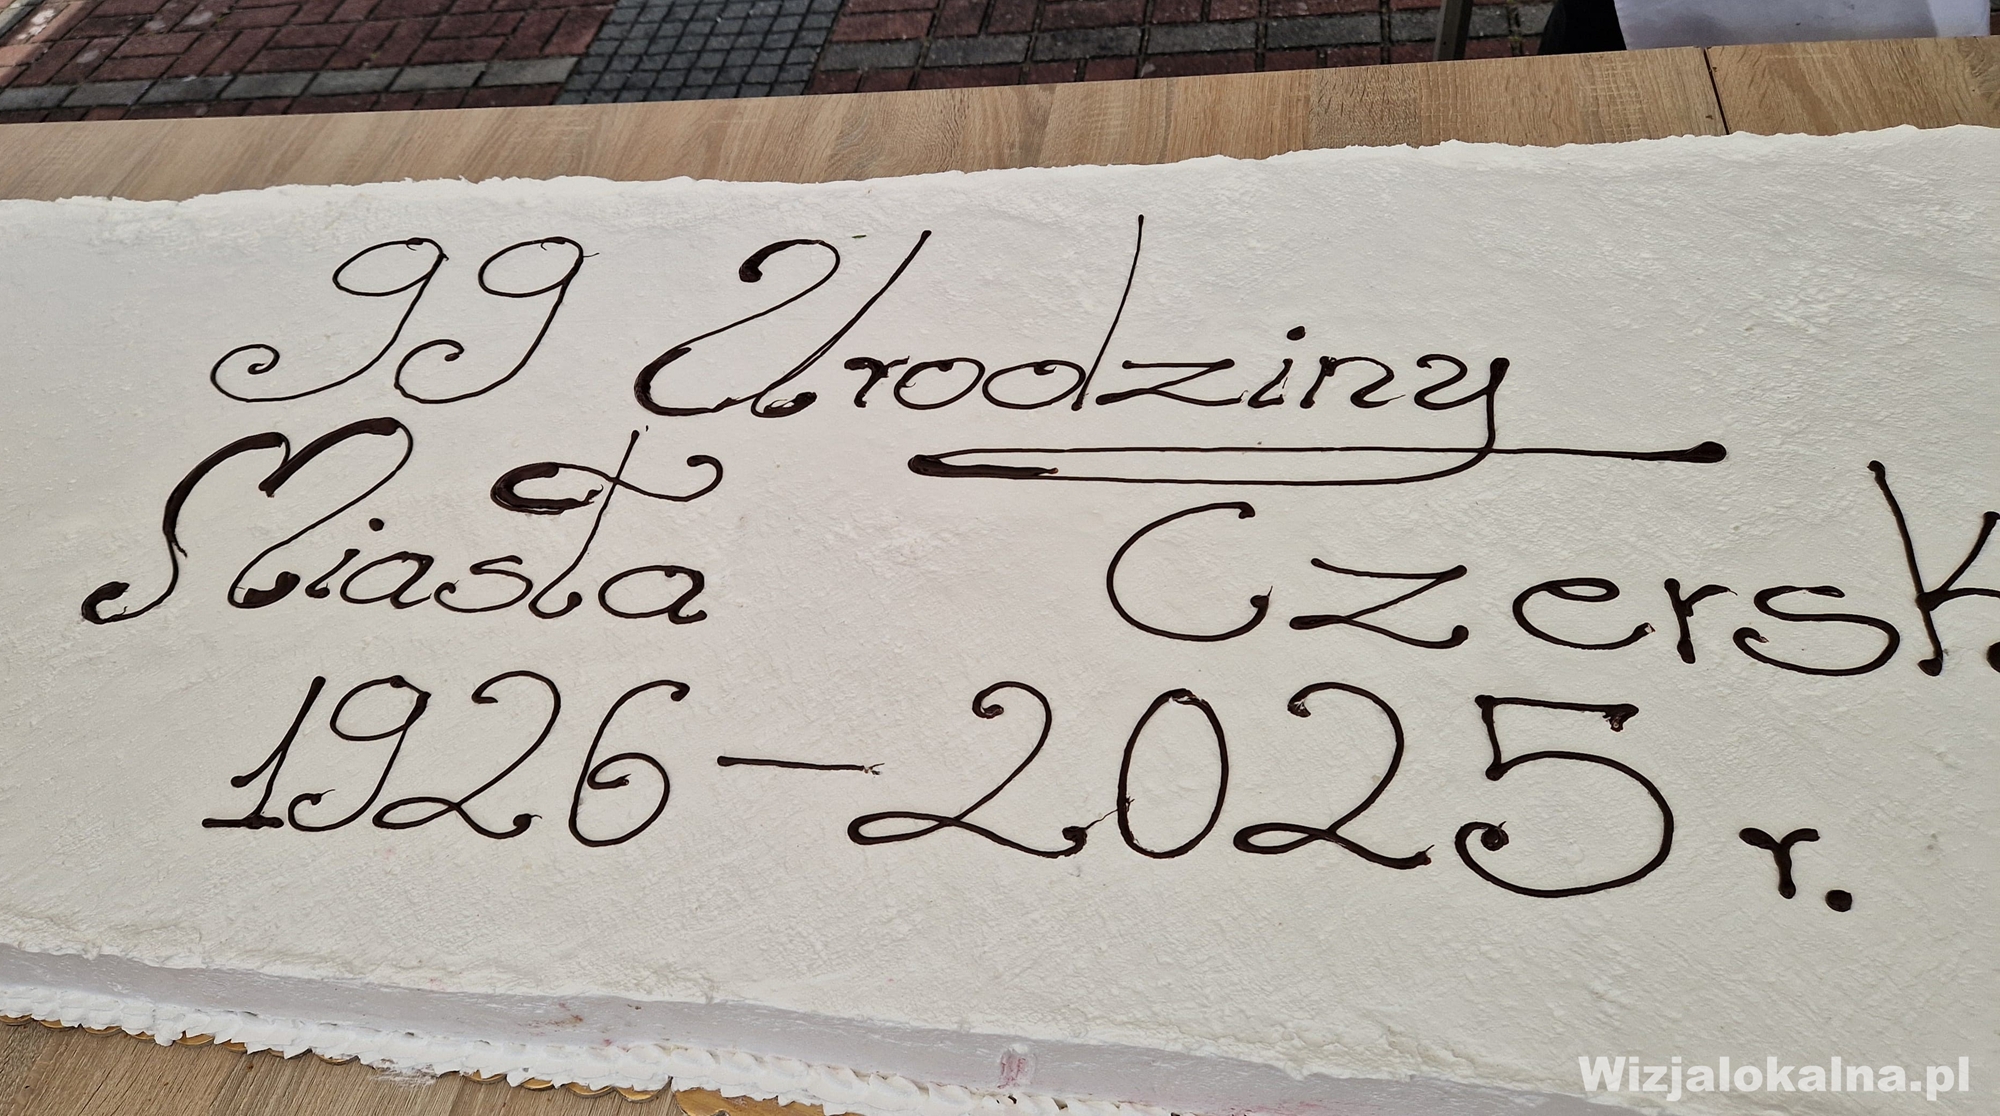 99 Urodziny
Miasta Czersk
1926-2025 r.
Wizjalokalna.pl